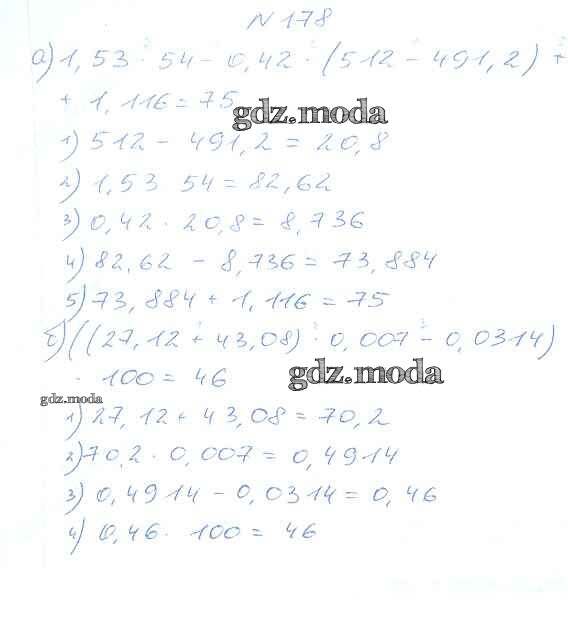 N 178
а) 1,53 · 54 - 0,42 · (512 - 491,2) +
+ 1,116 = 75
gdz.moda
1) 512 - 491,2 = 20,8
2) 1,53 54 = 82,62
3) 0,42 · 20,8 = 8,736
4) 82,62 - 8,736 = 73,884
5) 73,884 + 1,116 = 75
б) ((27,12 + 43,08) · 0,007 - 0,0314)
· 100 = 46
gdz.moda
gdz.moda
1) 27,12 + 43,08 = 70,2
2) 70,2 · 0,007 = 0,4914
3) 0,4914 - 0,0314 = 0,46
4) 0,46 · 100 = 46